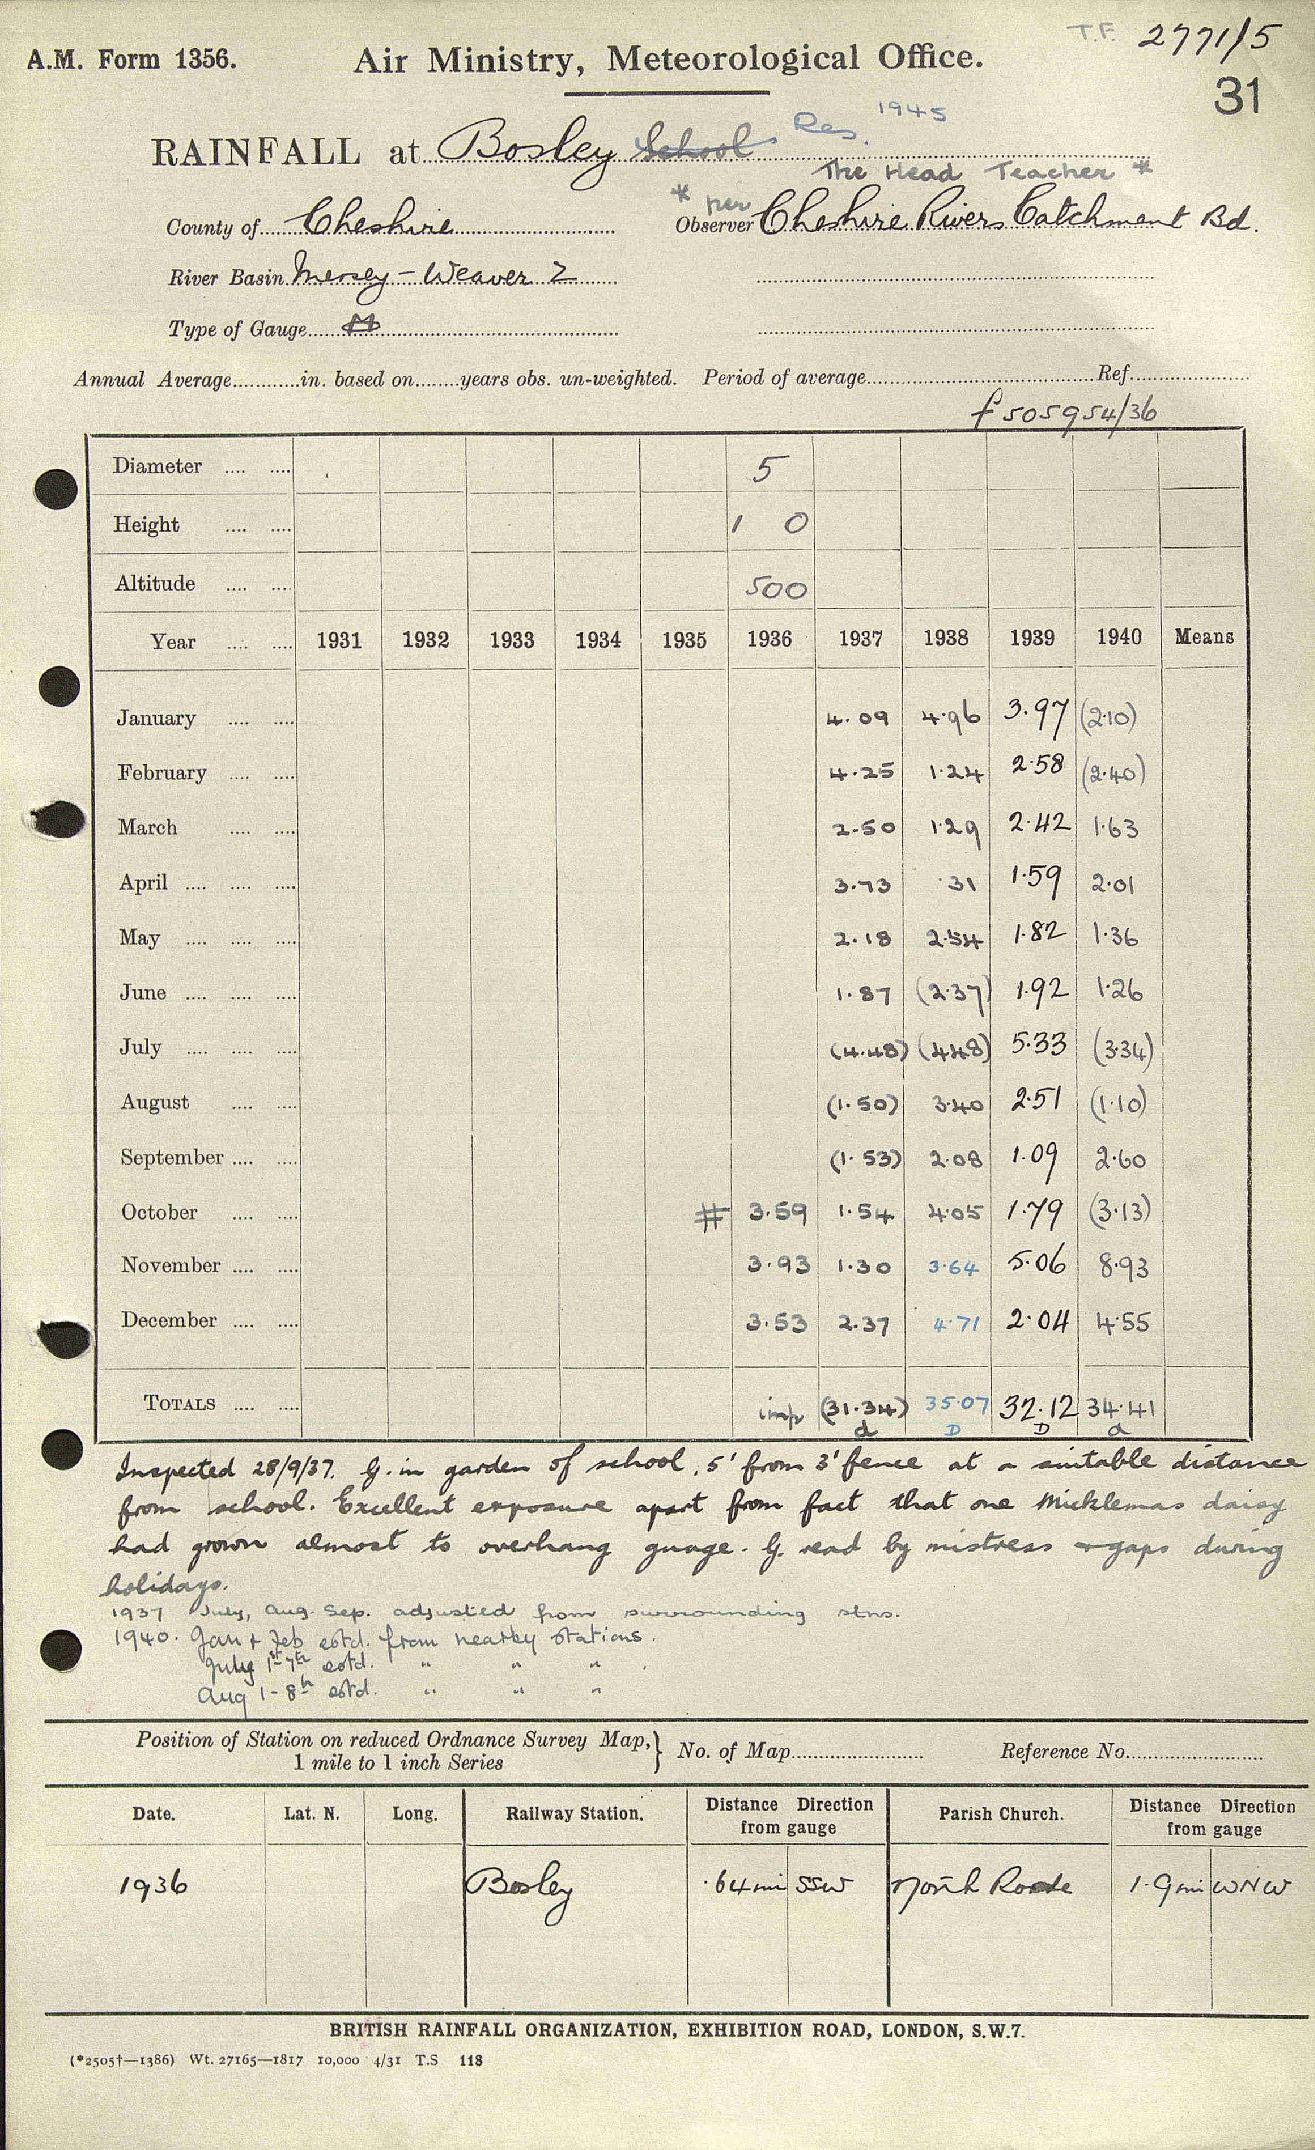 T.F. 2771/5
A.M. Form 1356.
Air Ministry, Meteorological Office.
31
RAINFALL at Bosley School Res. 1945
The Head Teacher *
County of Cheshire
* per
Observer Cheshire Rivers Catchment Bd.
River Basin Mersey - Weaver 2
Type of Gauge M
Annual Average in. based on years obs. un-weighted. Period of average Ref.
f 505954/36
Diameter .... .... 5
Height .... .... 1 0
Altitude .... .... 500
Year .... .... 1931 1932 1933 1934 1935 1936 1937 1938 1939 1940 Means
January .... .... 4.09 4.96 3.97 (2.10)
February .... .... 4.25 1.24 2.58 (2.40)
March .... .... 2.50 1.29 2.42 1.63
April .... .... .... 3.73 .31 1.59 2.01
May .... .... .... 2.18 2.54 1.82 1.36
June .... .... .... 1.87 (2.37) 1.92 1.26
July .... .... .... (4.48) (4.48) 5.33 (3.34)
August .... .... (1.50) 3.40 2.51 (1.10)
September .... .... (1.53) 2.08 1.09 2.60
October .... .... # 3.59 1.54 4.05 1.79 (3.13)
November .... .... 3.93 1.30 3.64 5.06 8.93
December .... .... 3.53 2.37 4.71 2.04 4.55
TOTALS .... .... imp (31.34) 35.07 32.12 34.41
d D D d
Inspected 28/9/37. G. in garden of school, 5' from 3' fence at a suitable distance
from school. Excellent exposure apart from fact that one Micklemas daisy
had grown almost to overhang guage. G. read by mistress + gaps during
holidays.
1937 July, Aug. Sep. adjusted from surrounding stns.
1940. Jan + Feb estd. from nearby stations.
July 1st-7th estd. " " "
Aug 1-8th estd. " " "
Position of Station on reduced Ordnance Survey Map,} No. of Map Reference No.
1 mile to 1 inch Series
Date. Lat. N. Long. Railway Station. Distance Direction from gauge Parish Church. Distance Direction from gauge
1936 Bosley .64mi SSW North Rode 1.9mi WNW
BRITISH RAINFALL ORGANIZATION, EXHIBITION ROAD, LONDON, S.W.7.
(*2505†—1386) Wt. 27165—1817 10,000 4/31 T.S 113